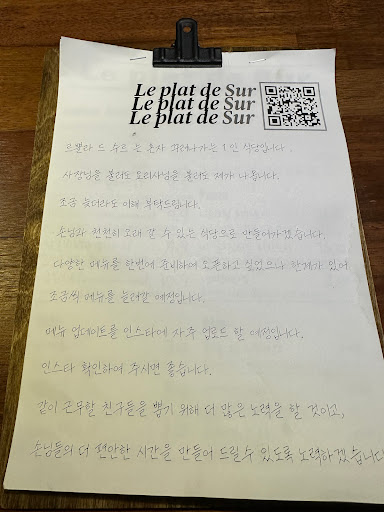 Le plat de Sur
Le plat de Sur
Le plat de Sur
르쁠라 드 쉬르 는 혼자 꾸려나가는 1인 식당입니다.
사장님을 불러도 요리사님을 불러도 제가 나옵니다.
조금 늦더라도 이해 부탁드립니다.
손님과 천천히 오래 갈 수 있는 식당으로 만들어가겠습니다.
다양한 메뉴를 한번에 준비하여 오픈하고 싶었으나 한계가 있어
조금씩 메뉴를 늘려갈 예정입니다.
메뉴 업데이트를 인스타에 자주 업로드 할 예정입니다.
인스타 확인하여 주시면 좋습니다.
같이 근무할 친구들을 뽑기 위해 더 많은 노력을 할 것이고,
손님들의 더 편안한 시간을 만들어 드릴수 있도록 노력하겠습니다